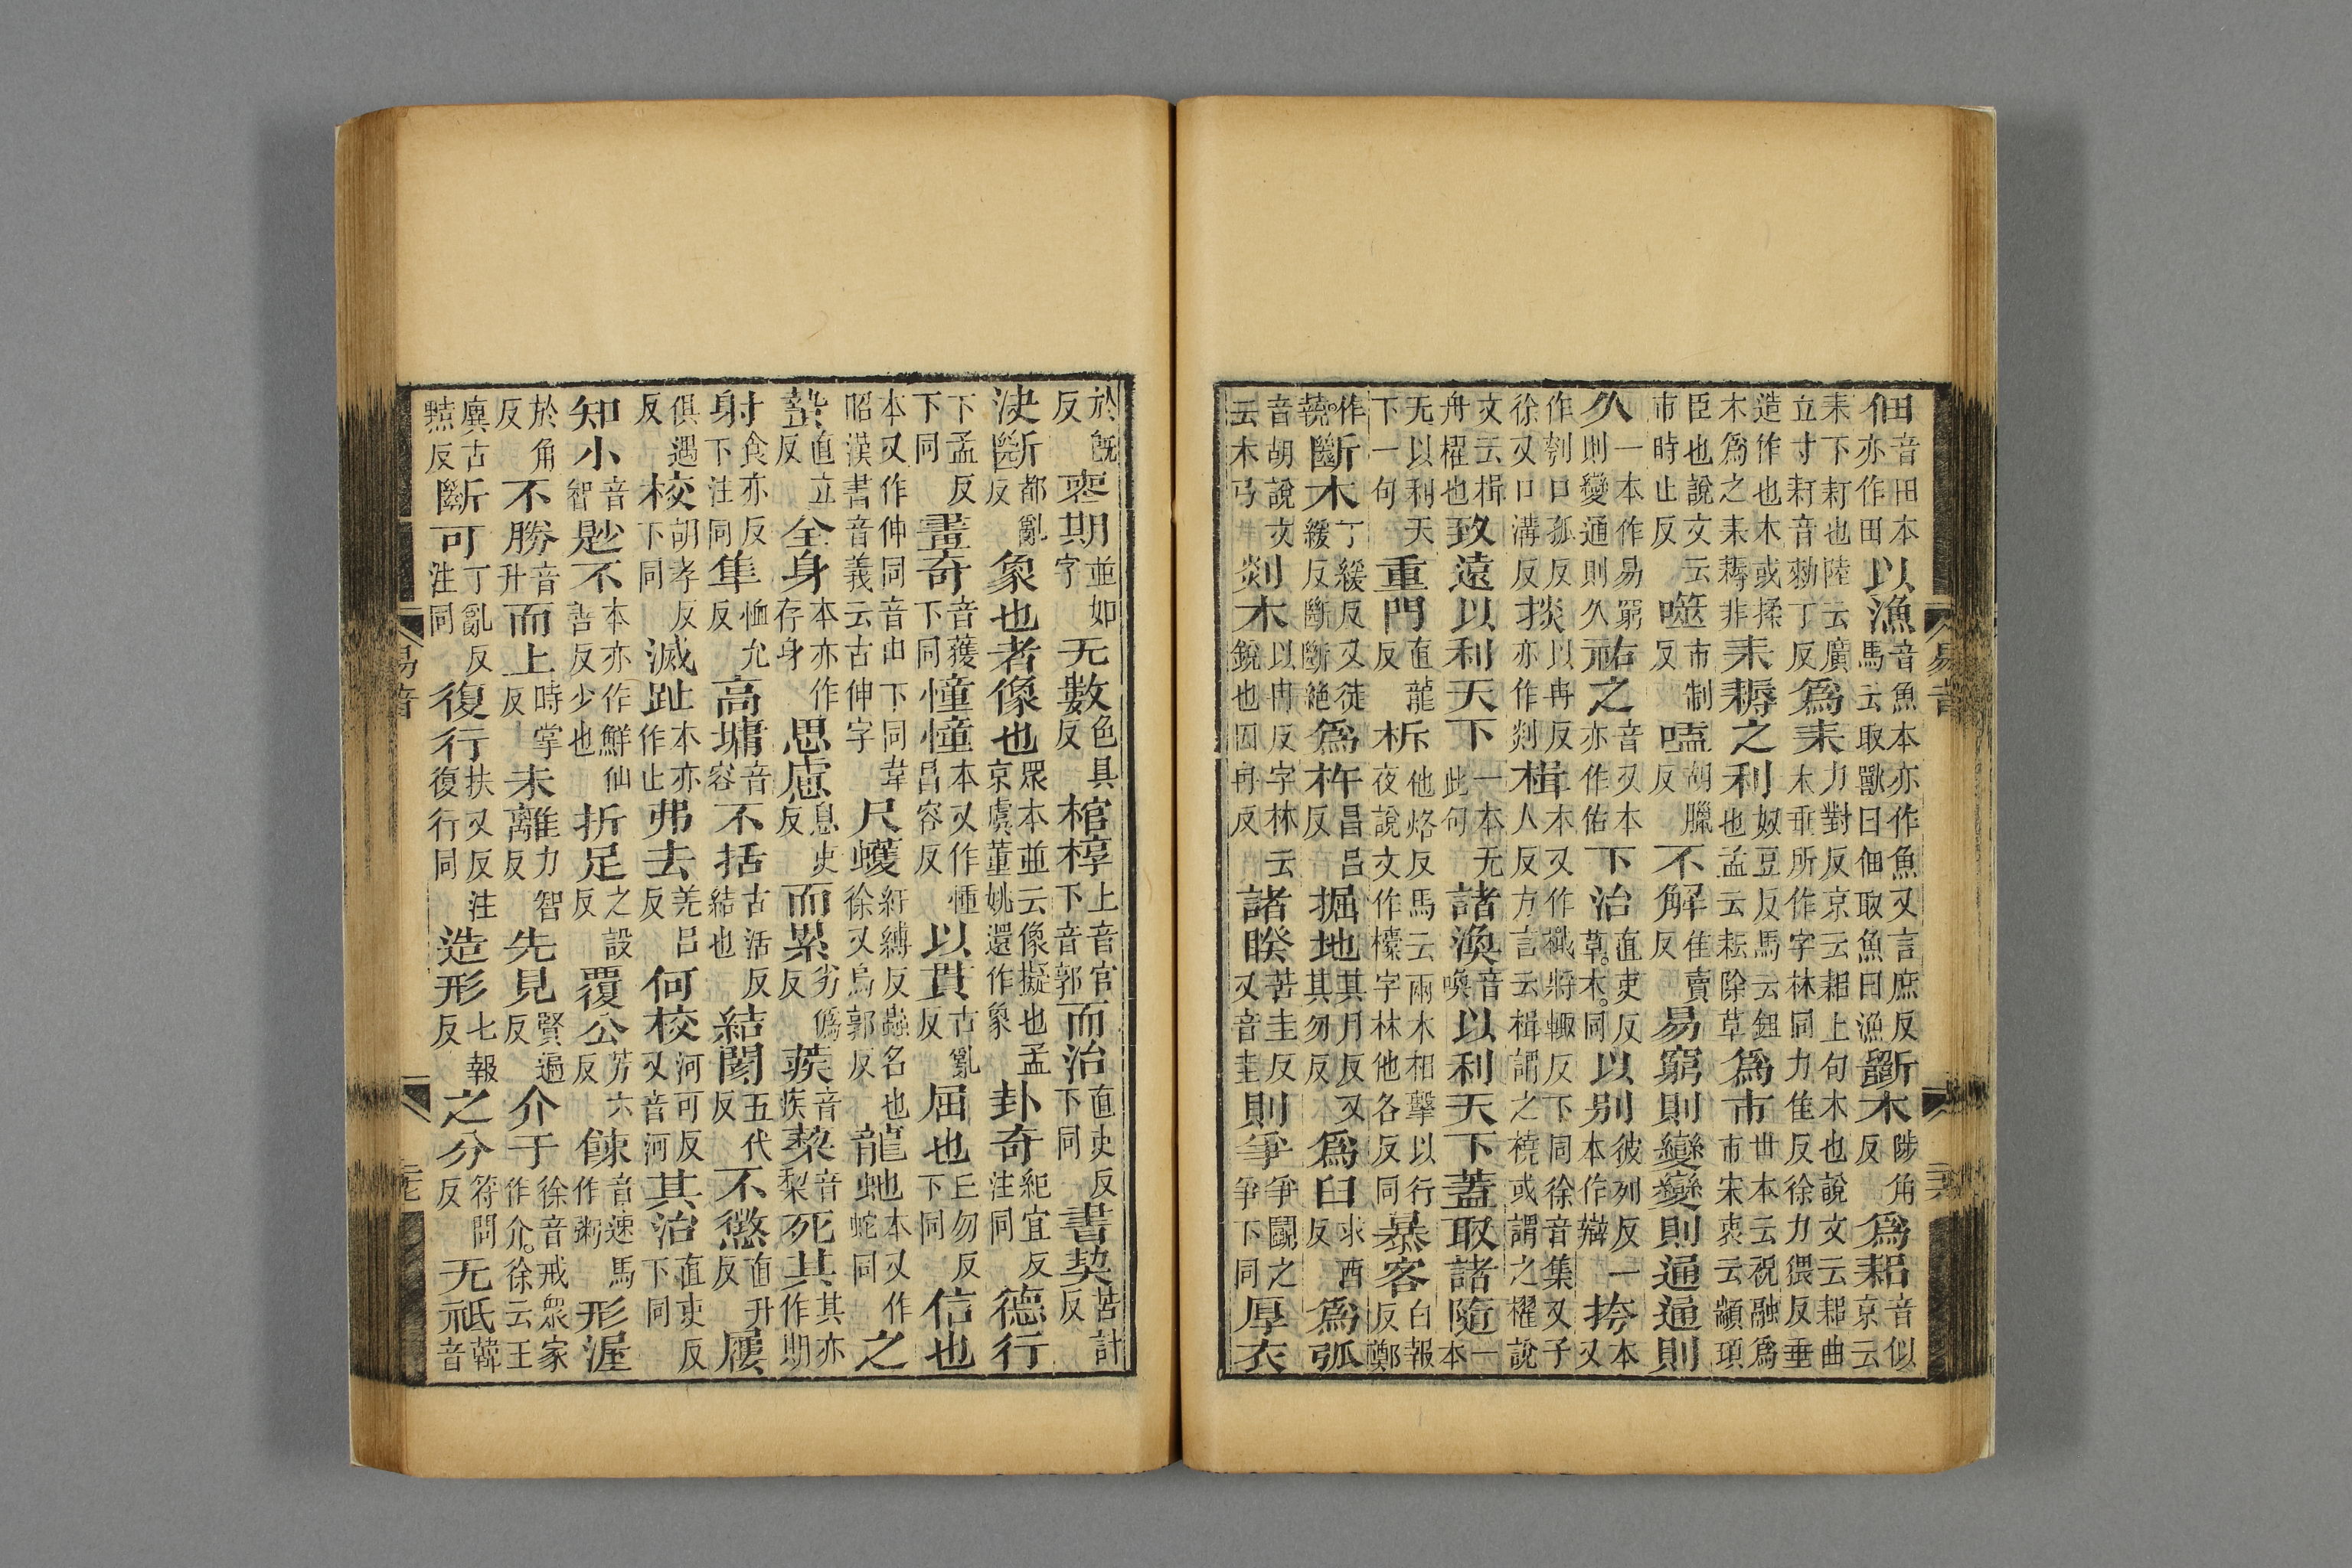 佃音田本亦作田以漁音魚本亦作魚又言庶反馬云取獸曰佃取魚曰漁斲木陟角反爲耜音似京云
耒下耓也陸云廣立寸耓音勑丁反爲耒力對反京云耜上句木也說文云耜曲木垂所作字林同力隹反徐力猥反垂
造作也木或揉木爲之耒耨非耒耨之利奴豆反馬云鉏也孟云耘除草爲市世本云祝融爲市宋衷云顓頊
臣也說文云市時止反噬市制反嗑胡臘反不解佳賣反易窮則變變則通通則
久一本作易窮則變通則久祐之音又本亦作佑下治直吏反章。末。同以别彼列反一本作辯挎本又
作刳口孤反徐又口溝反掞以冉反亦作剡楫本又作檝將輒反下同徐音集又子人反方言云楫謂之橈或謂之櫂說
文云楫舟櫂也致遠以利天下一本无此句諸渙音喚以利天下蓋取諸隨一本
无以利天下一句重門直龍反柝他烙反馬云兩木相擊以行夜說文作㯓字林他各反同暴客白報反鄭
作虣。斷木丁緩反又徒緩反斷斷絕爲杵昌呂反掘地其月反又其勿反爲臼求酉反爲弧
音胡說文云木弓剡木以冉反字林云銳也因冉反諸睽苦圭反又音圭則爭爭鬭之爭下同厚衣
易音
於旣反裹期並如字无數色具反棺椁上音官下音郭而治直吏反下同書契苦計反
決斷都亂反象也者像也眾本並云像擬也孟京虞董姚還作象卦奇紀宜反注同德行
下孟反下同畫奇音獲下同憧憧本又作㣫昌容反以貫古亂反屈也丘勿反下同信也
本又作伸同音申下同韋昭漢書音義云古伸字尺蠖紆縛反蟲名也徐又烏郭反龍虵本又作蛇同之
蟄直立反全身本亦作存身思慮息吏反而累劣僞反蒺音疾蔾音梨死其其亦作期
射食亦反下注同隼恤允反高墉音容不括古活反結也結閡五代反不懲直升反屨
俱遇反校胡孝反下同滅趾本亦作止弗去羌呂反何校河可反又音河其治直吏反下同
知小音智尟不本亦作鮮仙善反少也折足之設反覆公芳六反餗音速馬作粥形渥
於角反不勝音升而上時掌反未離力智反先見賢遍反介于徐音戒眾家作介。徐云王
廙古黠反斷可丁亂反注同復行扶又反注復行同造形七報反之分符問反无祇韓音
易音